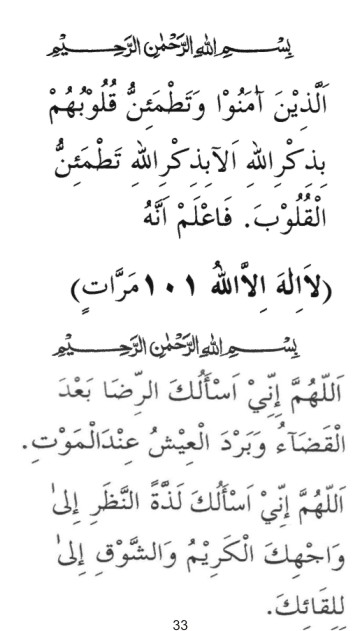 بِسْمِ اللهِ الرَّحْمٰنِ الرَّحِيْمِ
اَلَّذِيْنَ آمَنُوْا وَتَطْمَئِنُّ قُلُوْبُهُمْ
بِذِكْرِ اللهِ اَلاَ بِذِكْرِ اللهِ تَطْمَئِنُّ
الْقُلُوْبَ. فَاعْلَمْ اَنَّهُ
(لاَاِلهَ اِلاَّاللهُ ١٠١ مَرَّاتٍ)
بِسْمِ اللهِ الرَّحْمٰنِ الرَّحِيْمِ
اَللّٰهُمَّ إِنِّيْ اَسْأَلُكَ الرِّضَا بَعْدَ
الْقَضَآءُ وَبَرْدَ الْعِيْشُ عِنْدَالْمَوْتِ.
اَللّٰهُمَّ إِنِّيْ اَسْأَلُكَ لَذَّةً النَّظَرِ إِلىٰ
وَاجْهِكَ الْكَرِيْمُ وَالشَّوْقِ إِلىٰ
لِلِقَائِكَ.
33